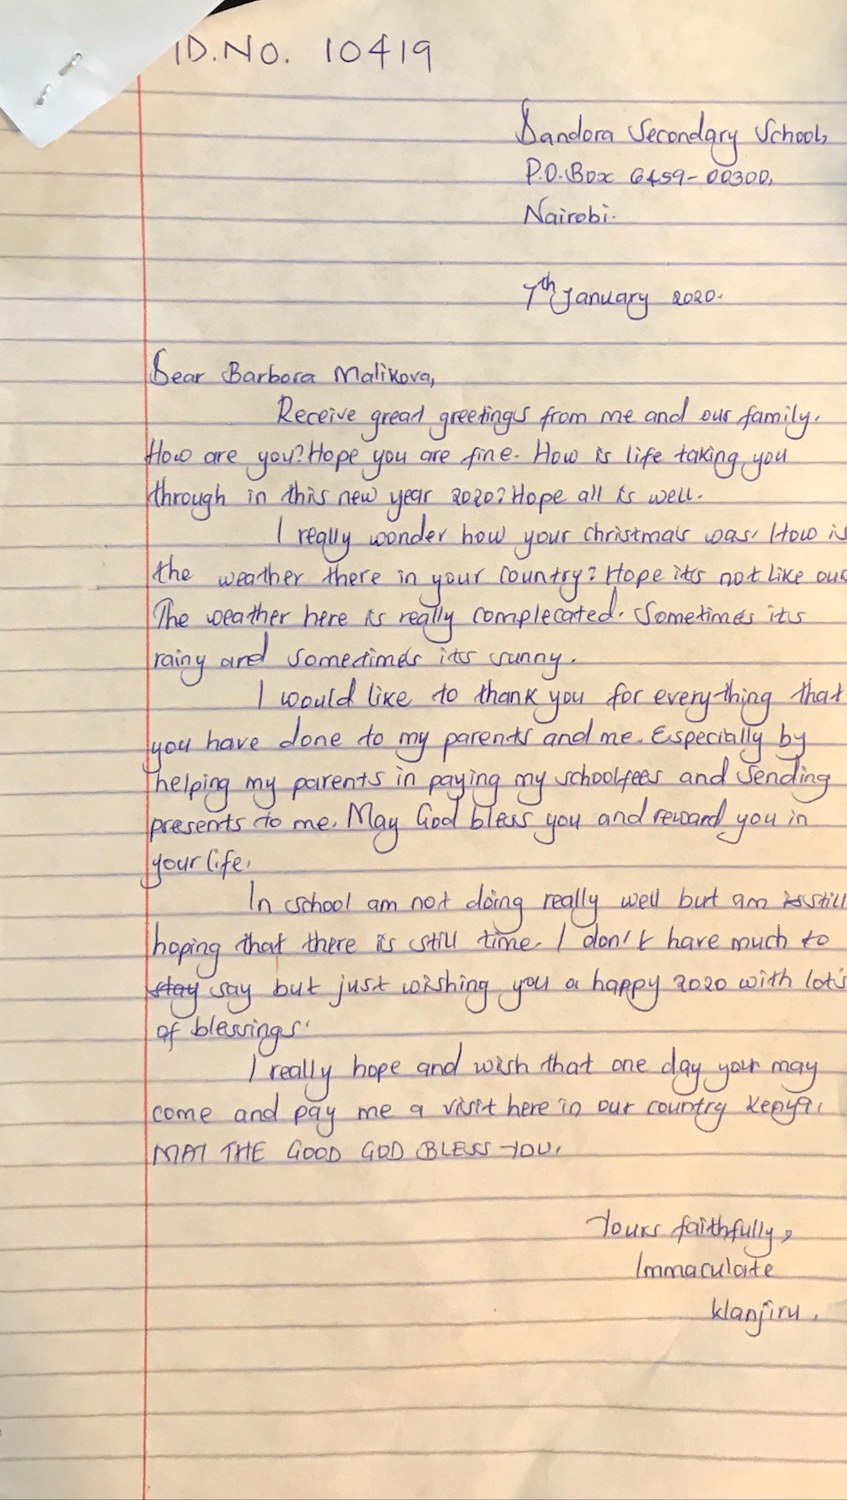 ID.No. 10419
Dandora Secondary School,
P.O.Box 6459-00300,
Nairobi.
7th January 2020.
Dear Barbora Malikova,
Receive great greetings from me and our family.
How are you? Hope you are fine. How is life taking you
through in this new year 2020? Hope all is well.
I really wonder how your christmas was. How is
the weather there in your country? Hope its not like our
The weather here is really complecated. Sometimes its
rainy and sometimes its sunny.
I would like to thank you for everything that
you have done to my parents and me. Especially by
helping my parents in paying my schoolfees and sending
presents to me. May God bless you and reward you in
your life.
In school am not doing really well but am is still
hoping that there is still time. I don't have much to
stay say but just wishing you a happy 2020 with lot's
of blessings.
I really hope and wish that one day your may
come and pay me a visit here in our country Kenya.
MAY THE GOOD GOD BLESS YOU.
Yours faithfully,
Immaculate
Wanjiru.